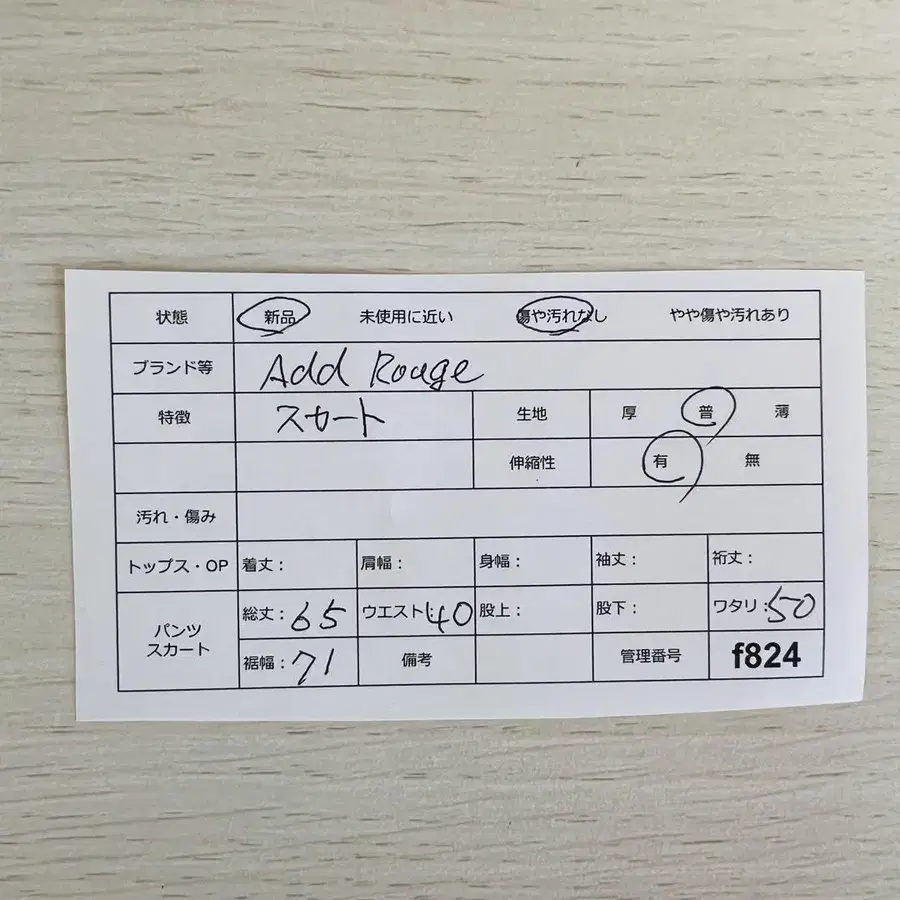 状態 新品 未使用に近い 傷や汚れなし やや傷や汚れあり
ブランド等 Add Rouge
特徴 スカート 生地 厚 普 薄
伸縮性 有 無
汚れ・傷み
トップス・OP 着丈： 肩幅： 身幅： 袖丈： 裄丈：
パンツ スカート
総丈：65 ウエスト：40 股上： 股下： ワタリ：50
裾幅：71 備考 管理番号 f824